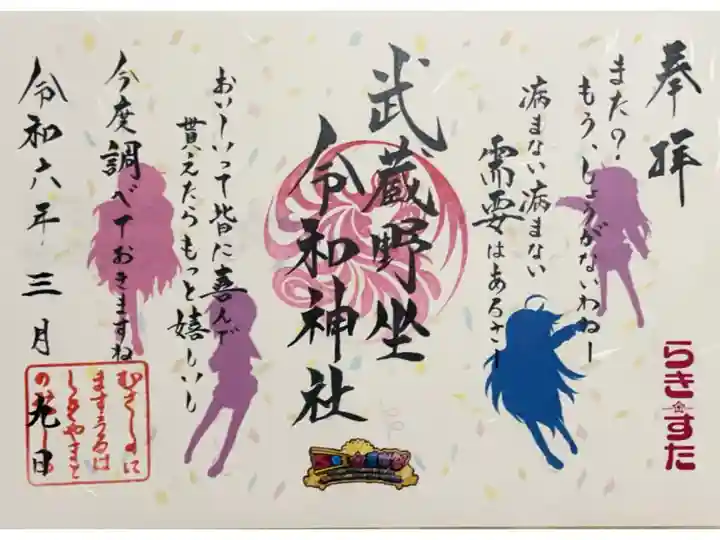 奉拝
また？
もう、しょうがないわねー
病まない病まない
需要はあるさー
武蔵野坐
令和神社
おいしいって皆に喜んで
貰えたらもっと嬉しいし
今度調べておきますね
令和六年三月九日
らき☆すた
むさしのに
ますうるは
しきやまと